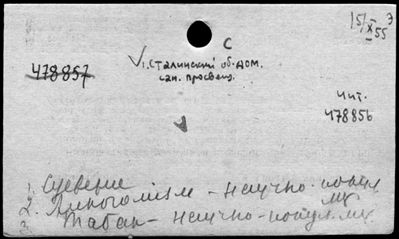 15/X 55
С
√1. Сталинский об. дом.
сан. просвещ.
478857
Чит.
478856
1. Суеверие
2. Алкоголизм – научно-попул.
3. Табак – научно-попул.